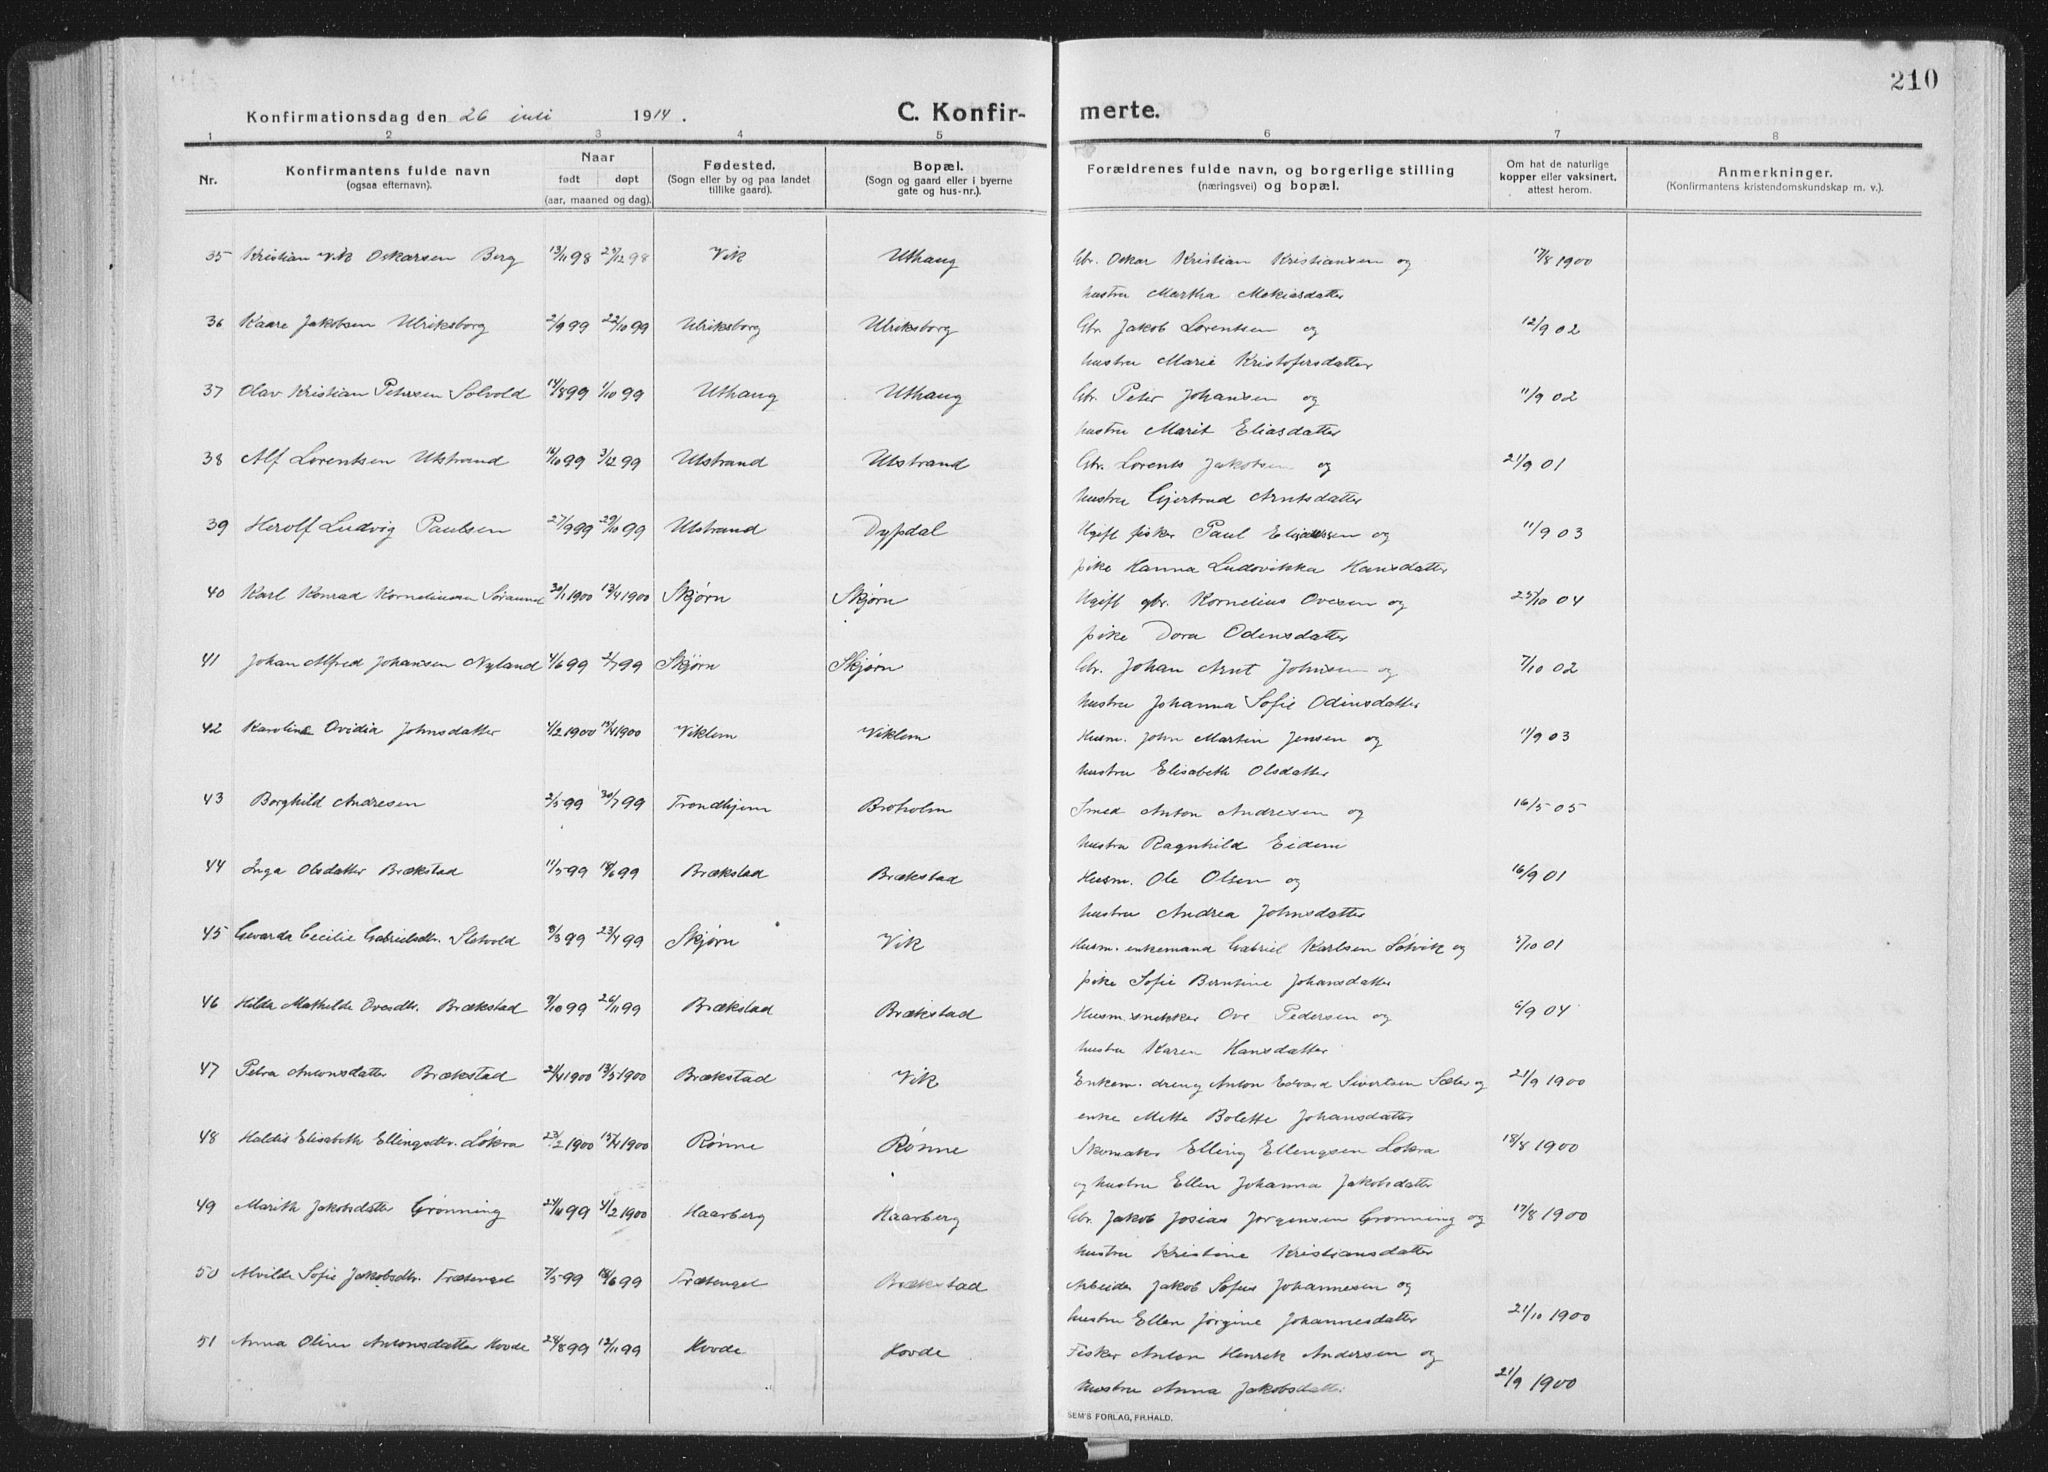 210
Konfirmationsdag den 26 juli 1914.
C. Konfirmerte.
1 2 3 4 5 6 7 8
Nr.
Konfirmantens fulde navn
(ogsaa efternavn).
Naar
født døpt
(aar, maaned og dag).
Fødested.
(Sogn eller by og paa landet
tillike gaard).
Bopæl.
(Sogn og gaard eller i byerne
gate og hus-nr.).
Forældrenes fulde navn, og borgerlige stilling
(næringsvei) og bopæl.
Om hat de naturlige
kopper eller vaksinert,
attest herom.
Anmerkninger.
(Konfirmantens kristendomskundskap m. v.).
35 Kristian Vik Oskarsen Berg 13/11 98 25/12 98 Vik Uthaug Gbr. Oskar Kristian Kristiansen og 17/8 1900
hustru Martha Mekiasdatter
36 Kaare Jakobsen Ulriksborg 2/9 99 22/10 99 Ulriksborg Ulriksborg Gbr. Jakob Lorentsen og 12/9 02
hustru Marie Kristofersdatter
37 Olav Kristian Petersen Solvold 14/8 99 1/10 99 Uthaug Uthaug Gbr. Peter Johansen og 11/9 02
hustru Marit Eliasdatter
38 Alf Lorentsen Utstrand 16/10 99 3/12 99 Utstrand Utstrand Gbr. Lorents Jakobsen og 21/9 01
hustru Gjertrud Arntsdatter
39 Herolf Ludvig Paulsen 27/9 99 29/10 99 Utstrand Dypdal Ugift fisker Paul Eliassen og 11/9 03
pike Hanna Ludovikka Hansdatter
40 Karl Konrad Korneliussen Søraunet 30/1 1900 13/4 1900 Skjørn Skjørn Ugift gbr. Kornelius Ovesen og 25/10 04
pike Dora Odinsdatter
41 Johan Alfred Johansen Nyland 4/6 99 2/7 99 Skjørn Skjørn Gbr. Johan Arnt Johnsen og 7/10 02
hustru Johanna Sofie Odinsdatter
42 Karoline Ovidia Johnsdatter 4/2 1900 13/4 1900 Viklem Viklem Husm. John Martin Jensen og 11/9 03
hustru Elisabeth Olsdatter
43 Borghild Andresen 2/5 99 30/7 99 Trondhjem Broholm Smed Anton Andresen og 16/5 05
hustru Ragnhild Eidem
44 Inga Olsdatter Brækstad 11/5 99 18/6 99 Brækstad Brækstad Husm. Ole Olsen og 16/9 01
hustru Andrea Johnsdatter
45 Gevarda Cecilie Gabrielsdtr. Sletvold 8/3 99 23/4 99 Skjørn Vik Husm. enkemand Gabriel Karlsen Solvik og 5/10 01
pike Sofie Berntine Johansdatter
46 Hilda Mathilde Ovesdtr. Brækstad 9/10 99 26/11 99 Brækstad Brækstad Husm. snekker Ove Pedersen og 6/9 04
hustru Karen Hansdatter
47 Petra Antonsdatter Brækstad 21/4 1900 13/5 1900 Brækstad Vik Enkem. dreng Anton Edvard Sivertsen Sæter og 21/9 1900
enke Mette Bolette Johansdatter
48 Haldis Elisabeth Ellingsdtr. Løkra 23/2 1900 15/4 1900 Rønne Rønne Skomaker Elling Ellingsen Løkra 18/8 1900
og hustru Ellen Johanna Jakobsdatter
49 Marith Jakobsdatter Grønning 24/11 99 4/2 1900 Haarberg Haarberg Gbr. Jakob Josias Jørgensen Grønning og 17/8 1900
hustru Kristine Kristiansdatter
50 Alvilde Sofie Jakobsdtr. Trætengel 7/5 99 18/6 99 Trætengel Brækstad Arbeider Jakob Sofus Johannesen og
hustru Ellen Jørgine Johannesdatter 21/10 1900
51 Anna Oline Antonsdatter Hovde 24/8 99 12/11 99 Hovde Hovde Fisker Anton Henrik Andersen og
hustru Anna Jakobsdatter 21/9 1900
SEM'S FORLAG, FR.HALD.